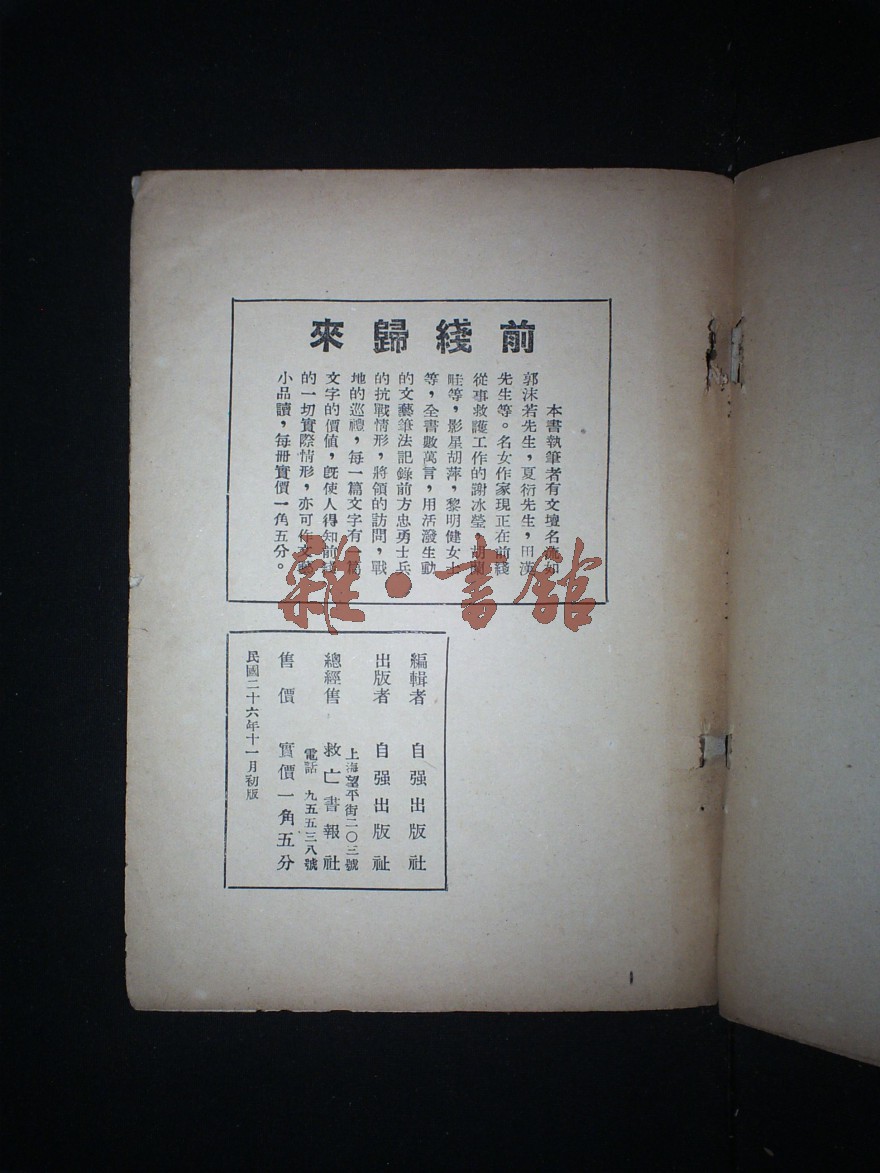 前綫歸來
本書執筆者有文壇名流如
郭沫若先生，夏衍先生，田漢
先生等。名女作家現正在前綫
從事救護工作的謝冰瑩，胡蘭
畦等，影星胡萍，黎明健女士
等，全書數萬言，用活潑生動
的文藝筆法記錄前方忠勇士兵
的抗戰情形，將領的訪問，戰
地的巡禮，每一篇文字有一篇
文字的價值，旣使人得知前綫
的一切實際情形，亦可作文藝
小品讀，每册實價一角五分。
編輯者 自强出版社
出版者 自强出版社
上海望平街二〇三號
總經售 救亡書報社
電話 九五五三八號
售價 實價一角五分
民國二十六年十一月初版
雜·書館